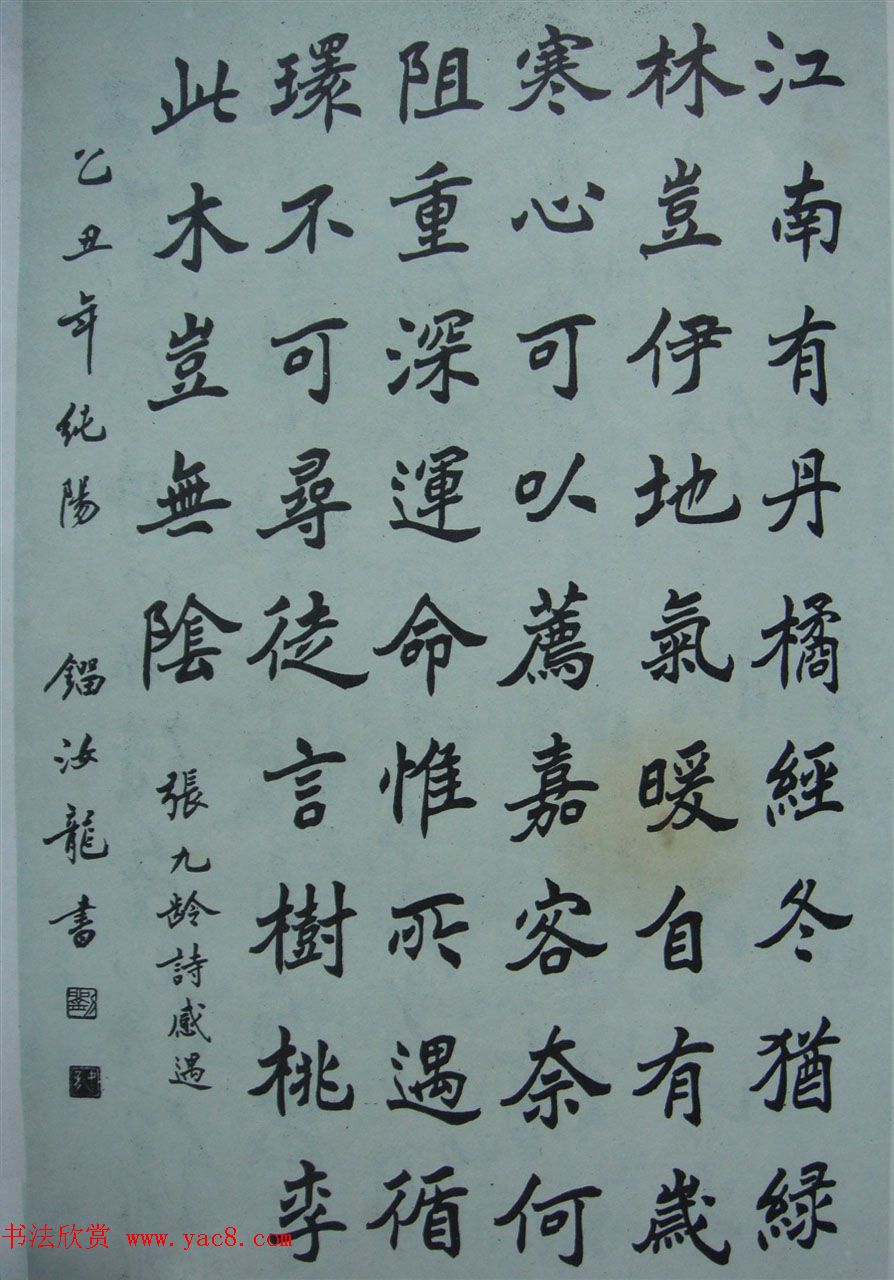 江南有丹橘經冬猶緑
林豈伊地氣暖自有歲
寒心可以薦嘉客奈何
阻重深運命惟所遇循
環不可尋徒言樹桃李
此木豈無陰
張九齡詩感遇
乙丑年純陽
鎦汝龍書
书法欣赏 www.yac8.com